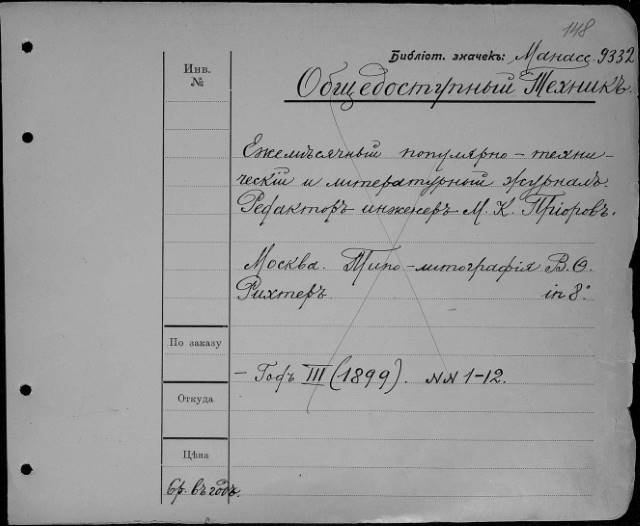 148
Библіот. значекъ: Манасс. 9332
Инв.
№
Общедоступный Техникъ.
Ежемѣсячный популярно-техни-
ческій и литературный журналъ.
Редакторъ инженеръ М. К. Пріоровъ.
Москва. Типо-литографія В. Ѳ.
Рихтеръ. in 8°
По заказу
— Годъ III (1899). №№ 1-12.
Откуда
Цѣна
6 р. въ годъ.